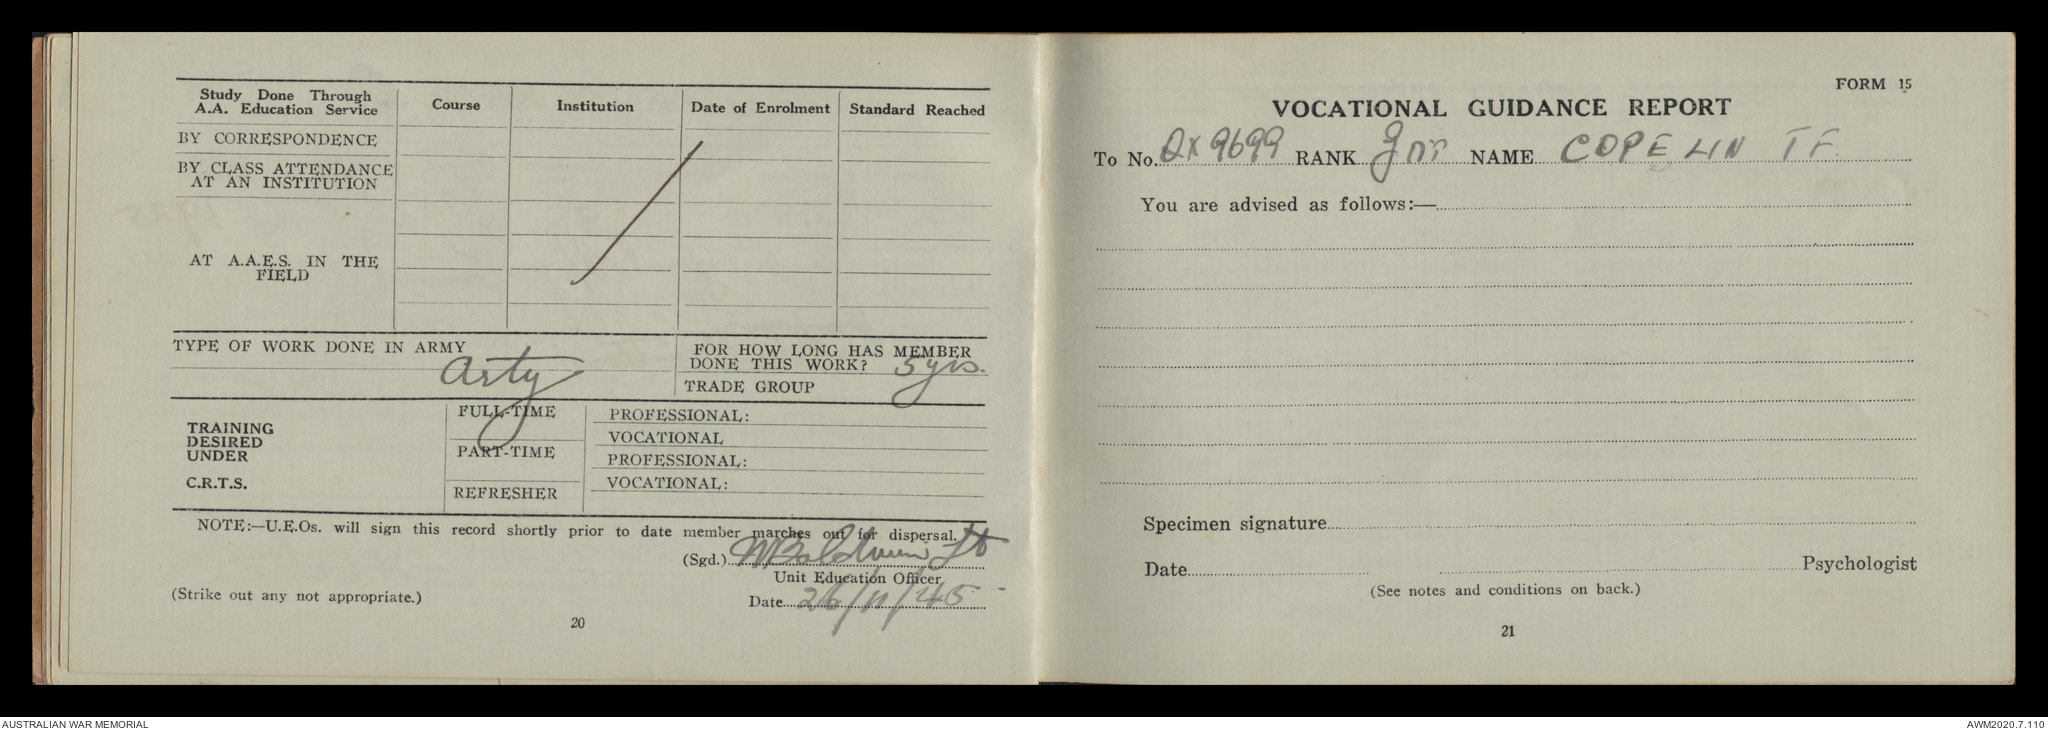 Study Done Through
A.A. Education Service
Course
Institution
Date of Enrolment
Standard Reached
BY CORRESPONDENCE
BY CLASS ATTENDANCE
AT AN INSTITUTION
AT A.A.E.S. IN THE
FIELD
TYPE OF WORK DONE IN ARMY
Arty
FOR HOW LONG HAS MEMBER
DONE THIS WORK? 5 yrs.
TRADE GROUP
TRAINING
DESIRED
UNDER
C.R.T.S.
FULL-TIME
PART-TIME
REFRESHER
PROFESSIONAL:
VOCATIONAL
PROFESSIONAL:
VOCATIONAL:
NOTE:—U.E.Os. will sign this record shortly prior to date member marches out for dispersal.
(Sgd.) Lt
Unit Education Officer
(Strike out any not appropriate.)
Date 26/11/45
20
FORM 15
VOCATIONAL GUIDANCE REPORT
To No. QX9699 RANK Gnr NAME COPELIN TF
You are advised as follows:—
Specimen signature
Date Psychologist
(See notes and conditions on back.)
21
AUSTRALIAN WAR MEMORIAL
AWM2020.7.110